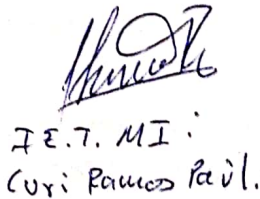 I E.T. MI :
Curi Ramos Paúl.